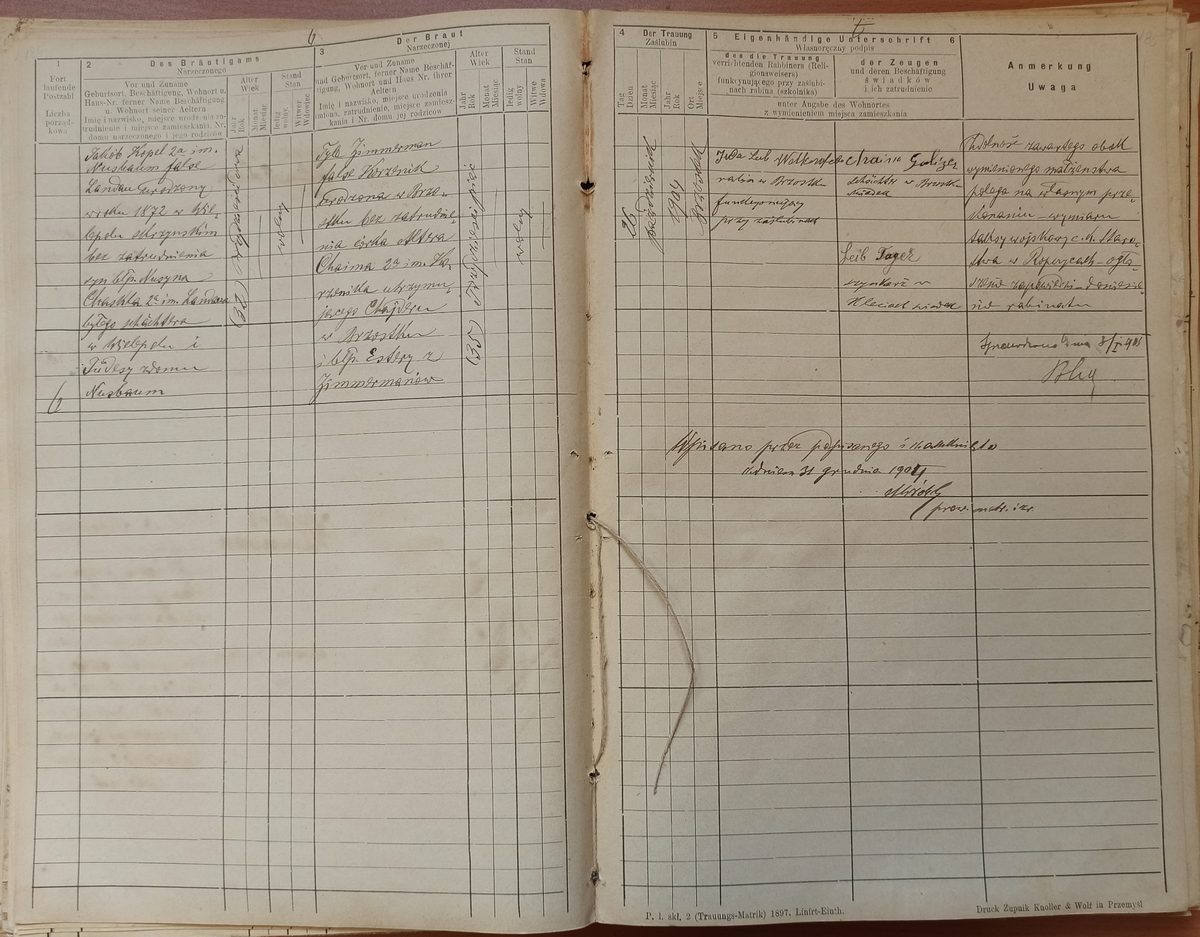 6
1
Fort
laufende
Postzahl
Liczba
porząd-
kowa
2
Des Bräutigams
Narzeczonego
Vor und Zuname
Geburtsort, Beschäftigung, Wohnort u.
Haus-Nr. ferner Name Beschäftigung
u. Wohnort seiner Aeltern
Imię i nazwisko, miejsce urodzenia za-
trudnienie i miejsce zamieszkania. Nr.
domu narzeczonego i jego rodziców
Alter
Wiek
Jahr
Rok
Monat
Miesiąc
Stand
Stan
ledig
wolny
Witwer
Wdowiec
3
Der Braut
Narzeczonej
Vor und Zuname
und Geburtsort, ferner Name Beschäf-
tigung, Wohnort und Haus Nr. ihrer
Aeltern
Imię i nazwisko, miejsce urodzenia
zatrudnienie, miejsce zamiesz-
kania i Nr. domu jej rodziców
Alter
Wiek
Jahr
Rok
Monat
Miesiąc
Stand
Stan
ledig
wolny
Witwe
Wdowa
Jakób Kopel 2a im.
Nusbaum false
Landau urodzony
w roku 1872 w Wie-
lopolu skrzyńskim
bez zatrudnienia
syn błp. Nusyna
Chaskla 2a im. Landau
byłego schächtera
w Wielopolu i
Judesy z domu
Nusbaum
6
(32)
wolny
Tyla Zimmerman
false Korzenik
urodzona w Brzo-
stku bez zatrudnie-
nia córka Altera
Chaima 2a im. Ko-
rzenika utrzymu-
jącego Chajderu
w Brzostku
i błp. Estery z
Zimmermanów
wolny
4
Der Trauung
Zaślubin
Tag
Dzień
Monat
Miesiąc
Jahr
Rok
Ort
Miejsce
5 Eigenhändige Unterschrift 6
Własnoręczny podpis
des die Trauung
verrichtenden Rabbiners (Reli-
gionsweisers)
funkcyonującego przy zaślubi-
nach rabina (szkolnika)
der Zeugen
und deren Beschäftigung
świadków
i ich zatrudnienie
unter Angabe des Wohnortes
z wymienieniem miejsca zamieszkania
Anmerkung
Uwaga
26
października
1904
Brzostek
Juda Leib
rabin w Brzostku
funkcyonujący
przy zaślubinach
Chaim
schächter w Brzostku
świadek
Leib
szynkarz w
Kleciach świadek
Zdolność zawartego obok
wymienionego małżeństwa
polega na własnym prze-
konaniu – wymiaru
taksy wojskowej c.k. Staro-
stwa w Ropczycach – ogło-
szeniu zapowiedzi – doniesie-
niu rabinatu
Wpisano przez podpisanego i zamknięto
w dniu 31 grudnia 1904
prow. metr. izr.
P. l. skł. 2 (Trauungs-Matrik) 1897. Linirt-Einth.
Druck Żupnik Knoller & Wolf in Przemyśl